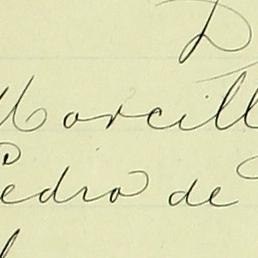 D
Morcill
Pedro de